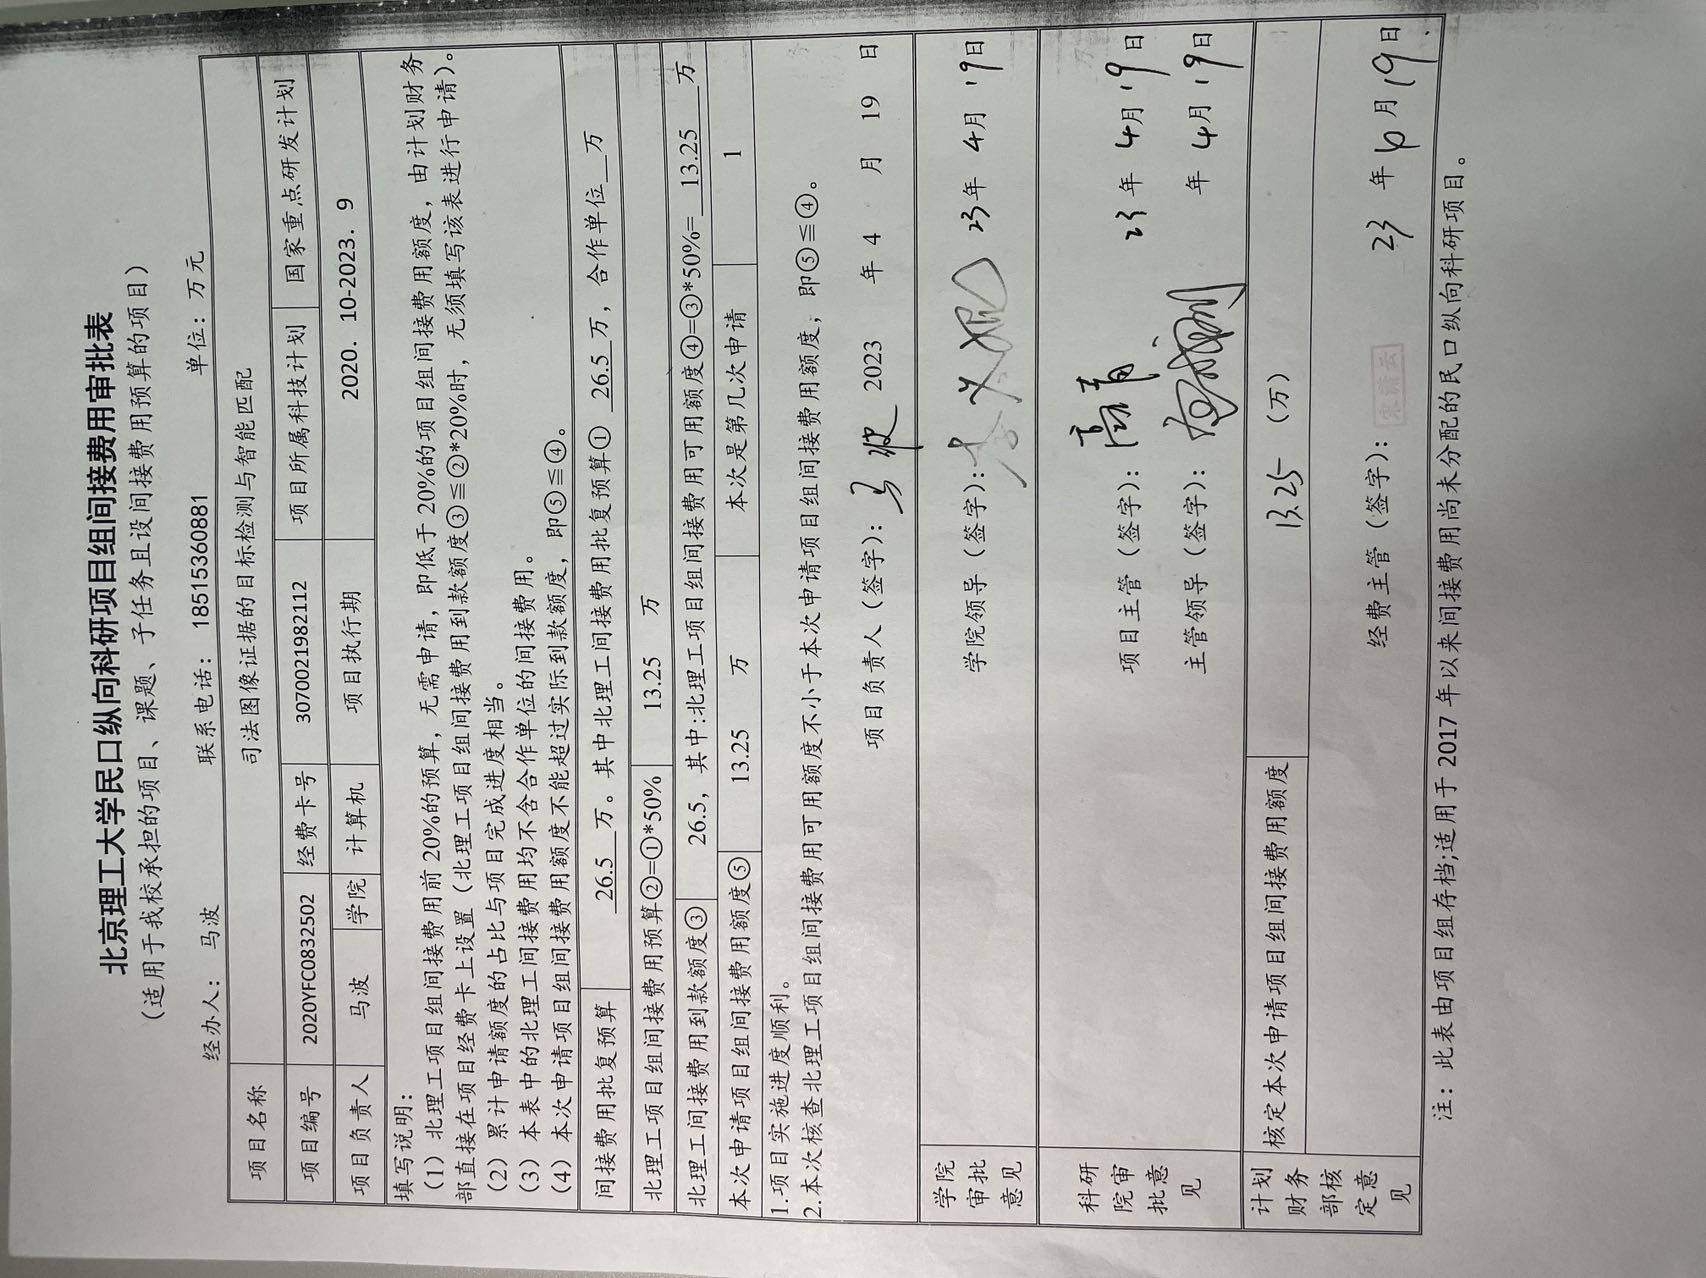 北京理工大学民口纵向科研项目组间接费用审批表
（适用于我校承担的项目、课题、子任务且设间接费用预算的项目）
经办人： 马波 联系电话： 18515360881 单位：万元
项目名称 司法图像证据的目标检测与智能匹配
项目编号 2020YFC0832502 经费卡号 3070021982112 项目所属科技计划 国家重点研发计划
项目负责人 马波 学院 计算机 项目执行期 2020. 10-2023. 9
填写说明：
（1）北理工项目组间接费用前 20%的预算，无需申请，即低于 20%的项目组间接费用额度，由计划财务
部直接在项目经费卡上设置（北理工项目组间接费用到款额度③≦②*20%时，无须填写该表进行申请）。
（2）累计申请额度的占比与项目完成进度相当。
（3）本表中的北理工间接费用均不含合作单位的间接费用。
（4）本次申请项目组间接费用额度不能超过实际到款额度，即⑤≦④。
间接费用批复预算 26.5 万。其中北理工间接费用批复预算① 26.5 万，合作单位__万
北理工项目组间接费用预算②=①*50% 13.25 万
北理工间接费用到款额度③ 26.5，其中:北理工项目组间接费用可用额度④=③*50%= 13.25 万
本次申请项目组间接费用额度⑤ 13.25 万 本次是第几次申请 1
1.项目实施进度顺利。
2.本次核查北理工项目组间接费用可用额度不小于本次申请项目组间接费用额度，即⑤≦④。
项目负责人（签字）：马波 2023 年 4 月 19 日
学院
审批
意见
学院领导（签字）： 23年 4月 19日
科研
院审
批意
见
项目主管（签字）：高青 23 年 4月 19日
主管领导（签字）： 年 4月 19日
计划
财务
部核
定意
见
核定本次申请项目组间接费用额度 13.25 （万）
经费主管（签字）： 23 年 4 月 19日
注：此表由项目组存档;适用于 2017 年以来间接费用尚未分配的民口纵向科研项目。